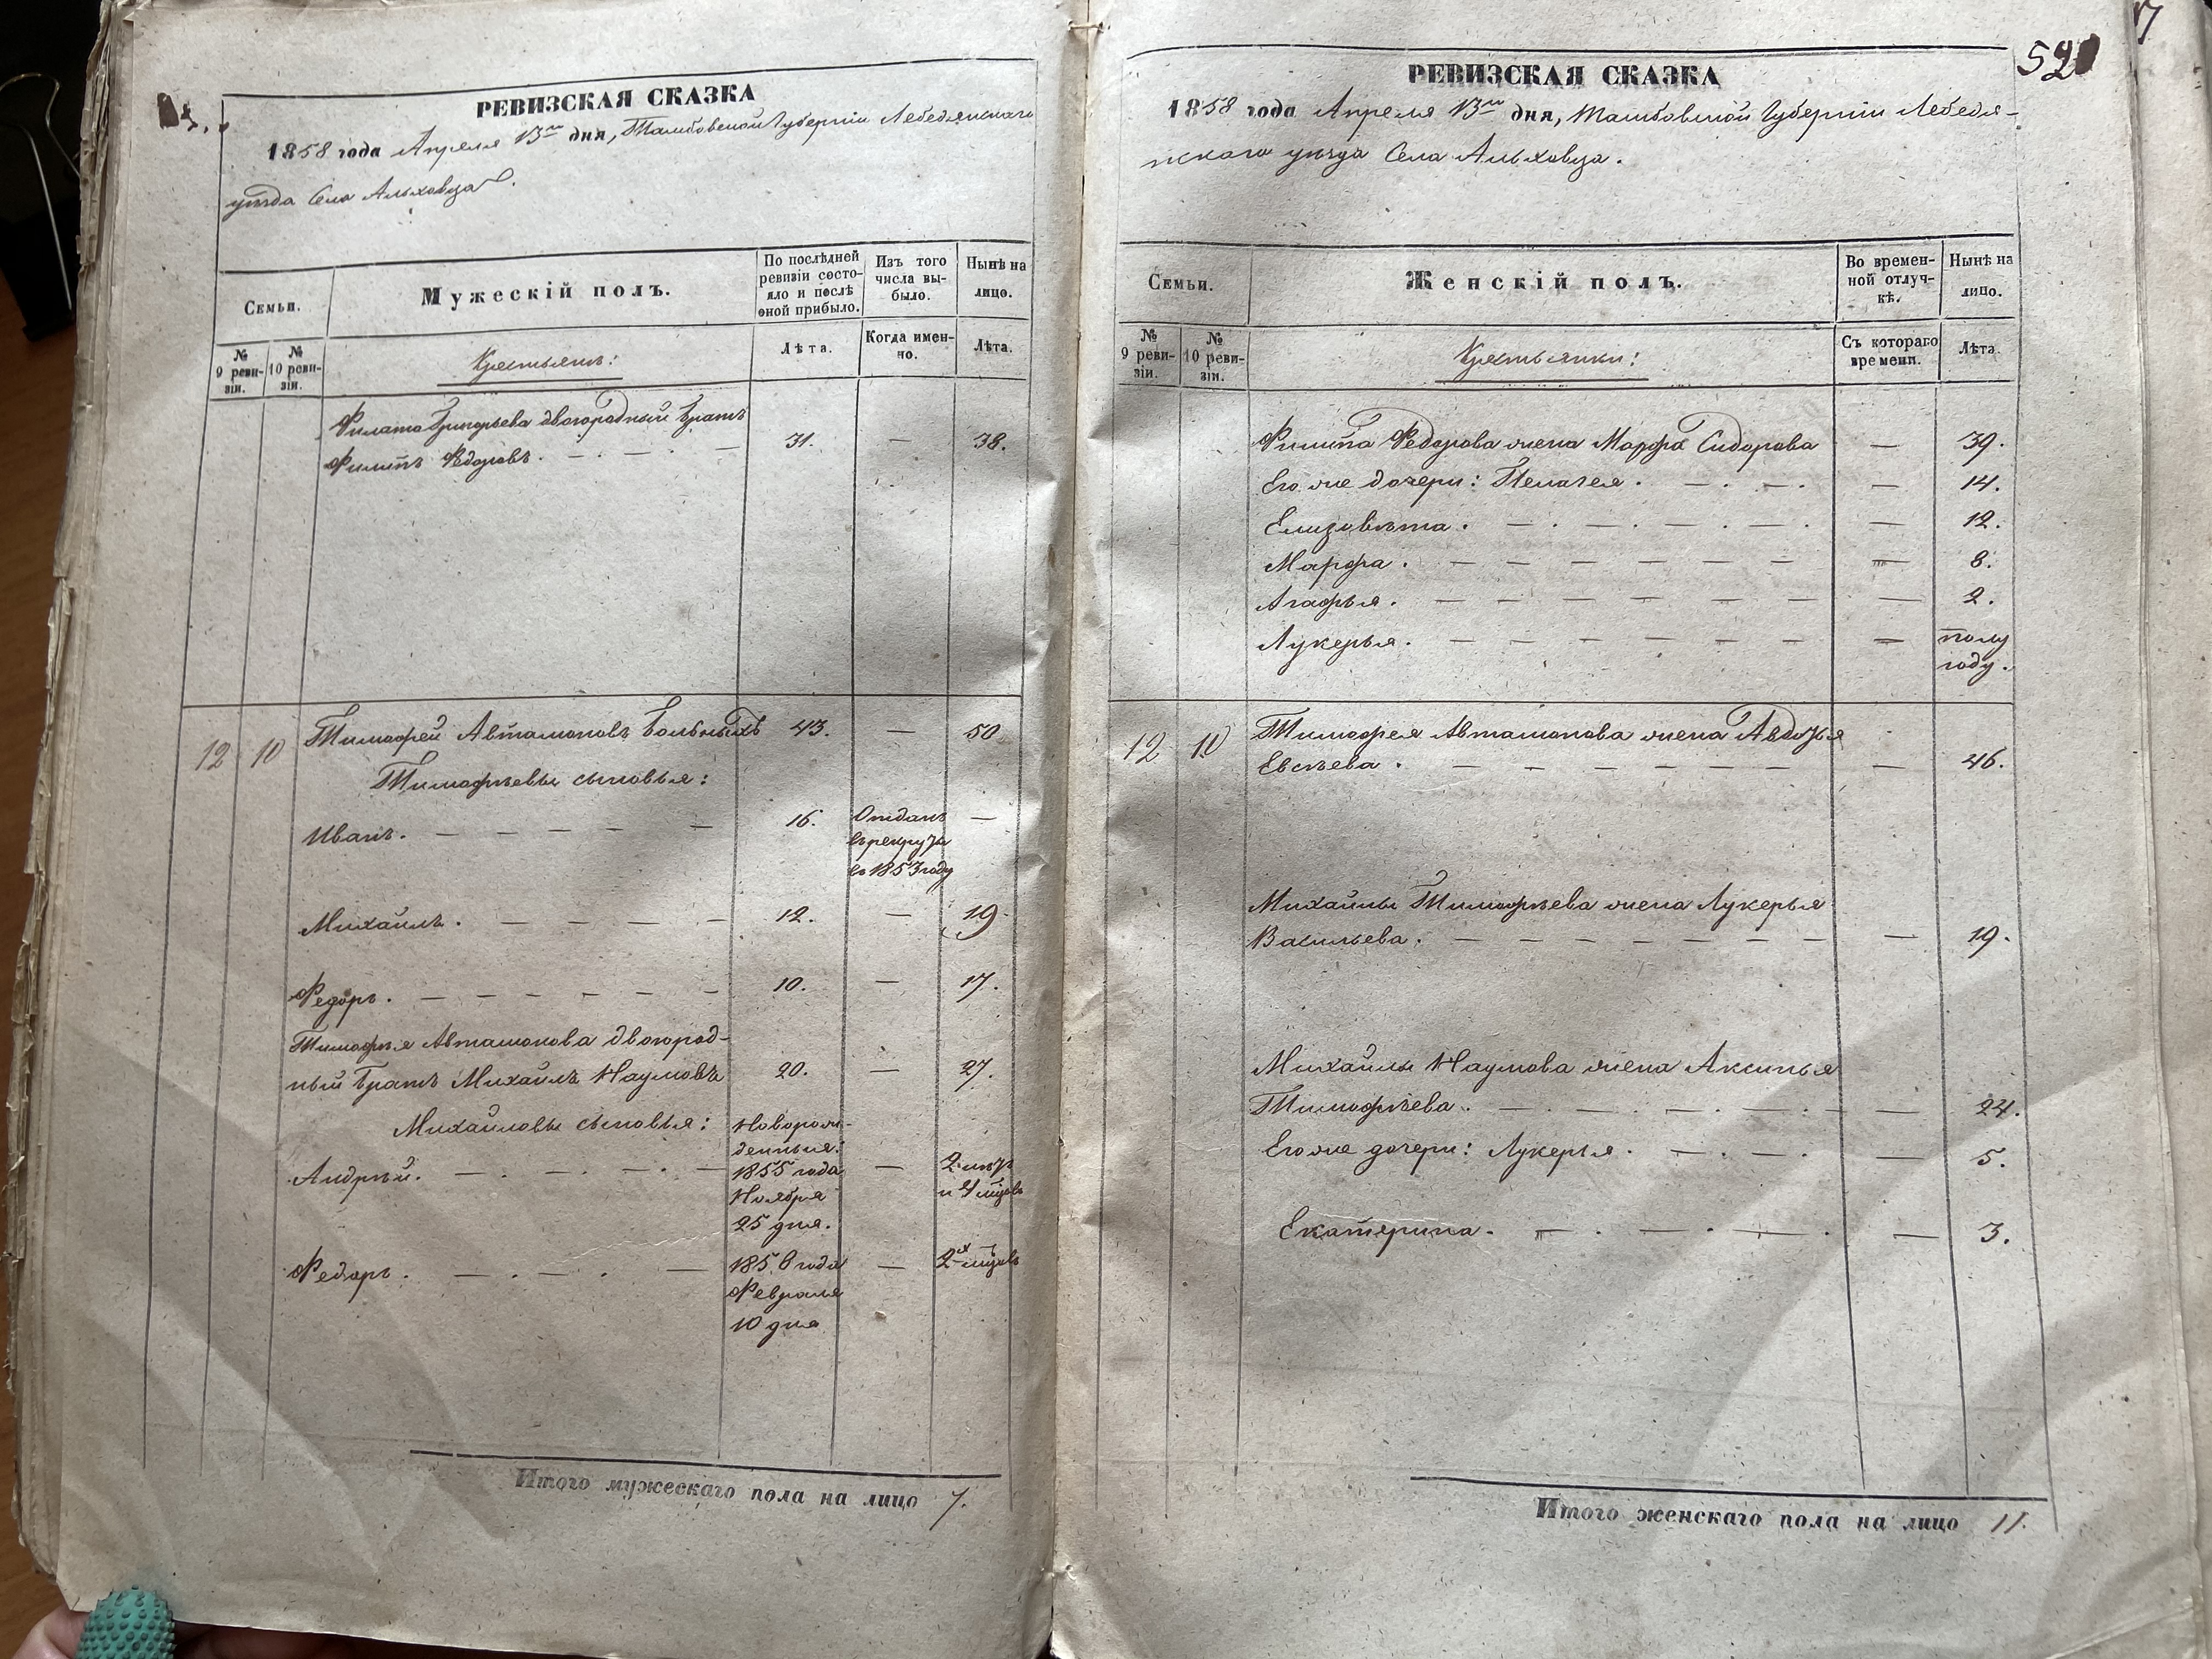 РЕВИЗСКАЯ СКАЗКА
1858 года Апреля 13го дня, Тамбовской Губернiи Лебедянскаго
уѣзда Села Ольховца.
Семьи.
Мужескiй полъ.
По послѣдней
ревизiи состо-
яло и послѣ
оной прибыло.
Изъ того
числа вы-
было.
Нынѣ на
лицо.
№
9 реви-
зiи.
№
10 реви-
зiи.
Крестьянъ:
Лѣта.
Когда имен-
но.
Лѣта.
Филата Григорьева двоюродный братъ
Филипъ Федоровъ. 31. — 38.
12 10 Тимофей Автамоновъ Больныхъ 43. — 50
Тимофѣевы сыновья:
Иванъ. 16. Отданъ —
в рекруты
в 1853 году
Михайлъ. 12. — 19.
Федоръ. 10. — 17.
Тимофѣя Автамонова двоюрод-
ный братъ Михайлъ Наумовъ 20. — 27.
Михайловы сыновья: Новорож-
денныя:
Андрѣй. 1855 года — 2 лѣтъ
Ноября и 4 мцовъ
25 дня.
Федоръ. 1858 года — 2хъ мцовъ
Февраля
10 дня
Итого мужескаго пола на лицо 7.
521
РЕВИЗСКАЯ СКАЗКА
1858 года Апреля 13го дня, Тамбовской Губернiи Лебедя-
нскаго уѣзда Села Ольховца.
Семьи.
Женскiй полъ.
Во времен-
ной отлуч-
кѣ.
Нынѣ на
лицо.
№
9 реви-
зiи.
№
10 реви-
зiи.
Крестьянки:
Съ котораго
времени.
Лѣта.
Филипа Федорова жена Марфа Сидорова — 39.
Его же дочери: Пелагея. — 14.
Елизовѣта. — 12.
Марфа. — 8.
Агафья. — 2.
Лукерья. — полу
году.
12 10 Тимофея Автамонова жена Авдотья
Евсѣева. — 46.
Михайлы Тимофѣева жена Лукерья
Васильева. — 19.
Михайлы Наумова жена Аксинья
Тимофѣева. — 24.
Его же дочери: Лукерья. — 5.
Екатерина. — 3.
Итого женскаго пола на лицо 11.